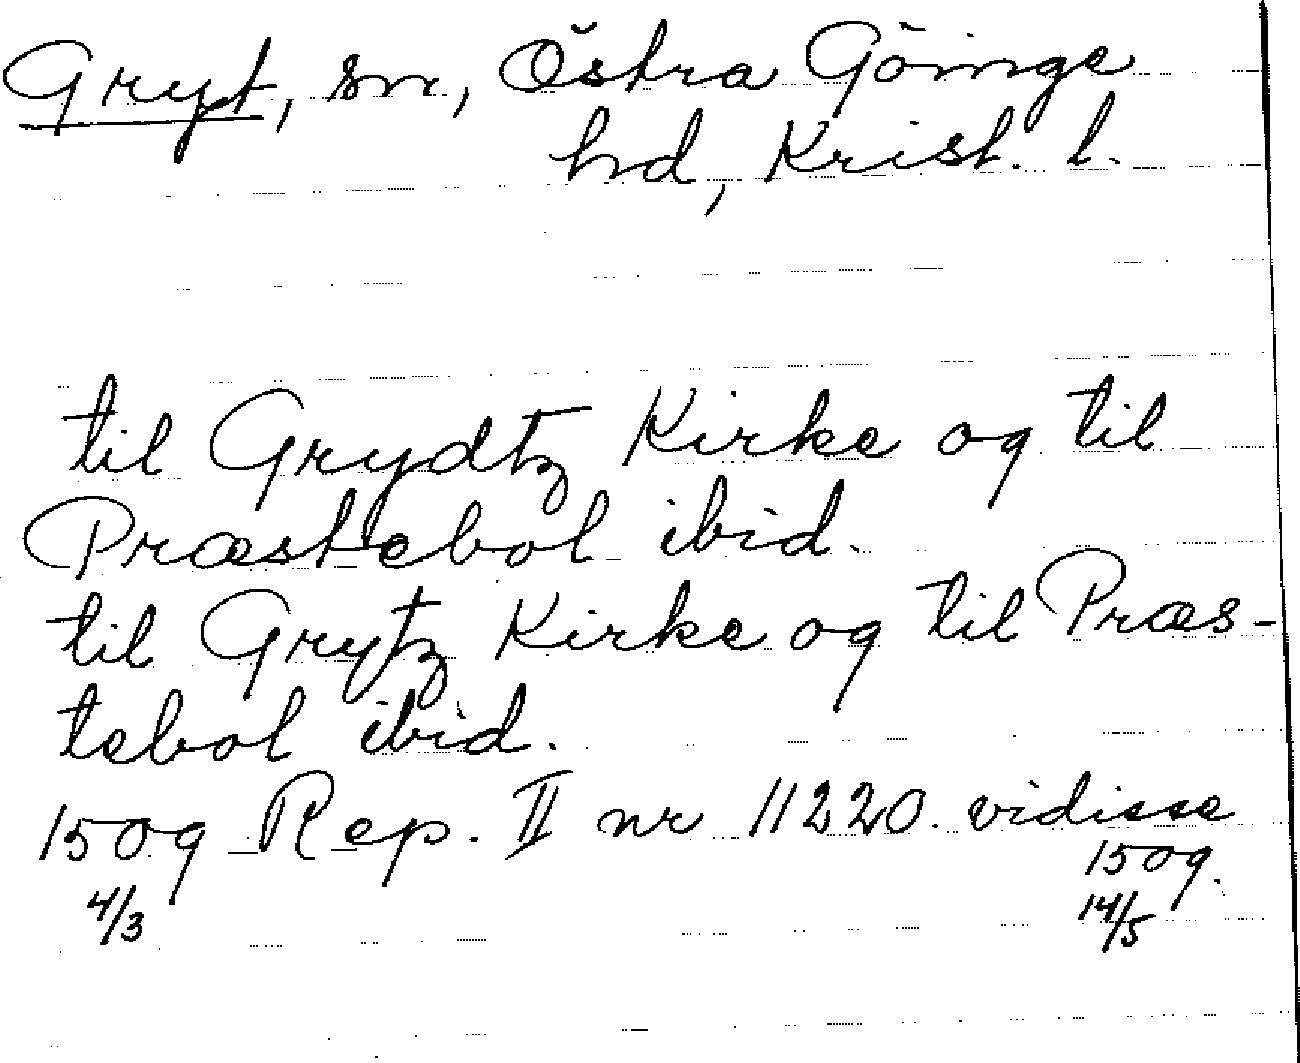 Gryt, sn, Östra Göinge
hd, Krist. l.
til Grydtz Kirke og til
Præstebol ibid.
til Grytz Kirke og til Præs-
tebol ibid.
1509 Rep. II nr 11220. vidisse
4/3 1509.
14/5